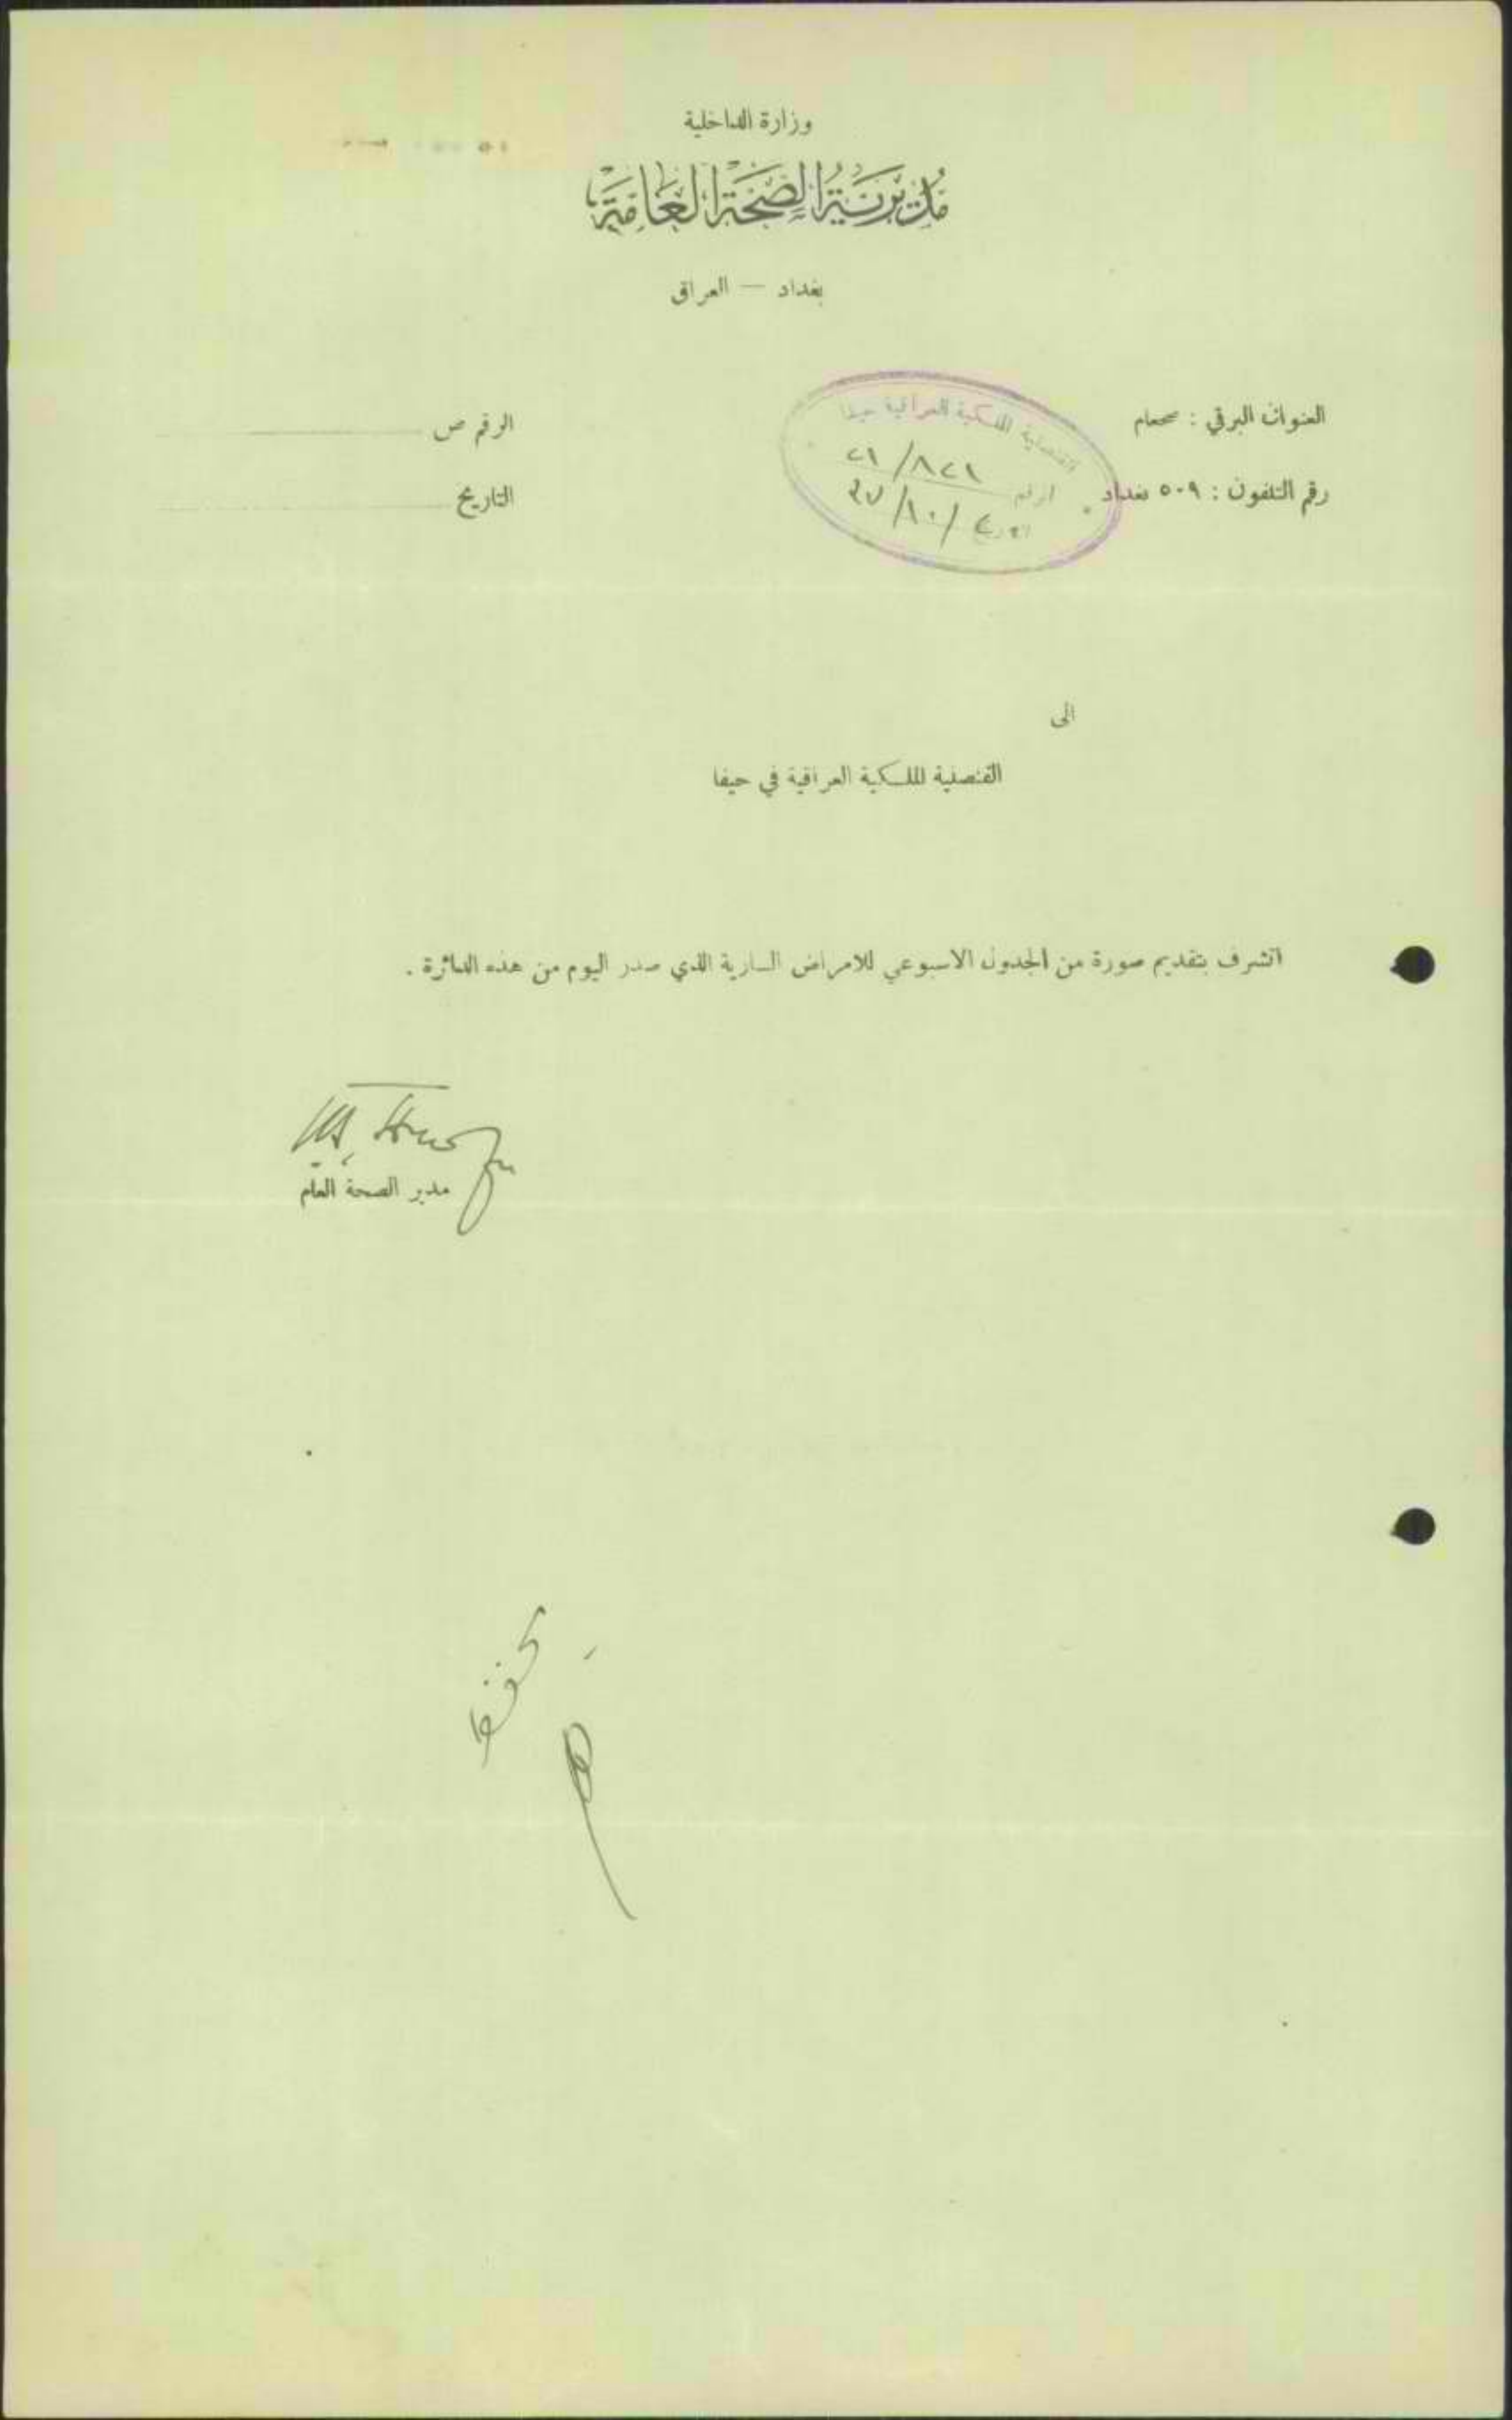 وزارة الداخلية
مديرية الصحة العامة
بغداد — العراق
العنوان البرقي : صحعام
رقم التلفون : ٥٠٩ بغداد
الرقم ص
التاريخ
القنصلية الملكية العراقية حيفا
الرقم ٨٢١/٢١
التاريخ ٤/١٠/٣٧
الى
القنصلية الملكية العراقية في حيفا
اتشرف بتقديم صورة من الجدول الاسبوعي للامراض السارية الذي صدر اليوم من هذه الدائرة .
مدير الصحة العام
تحفظ